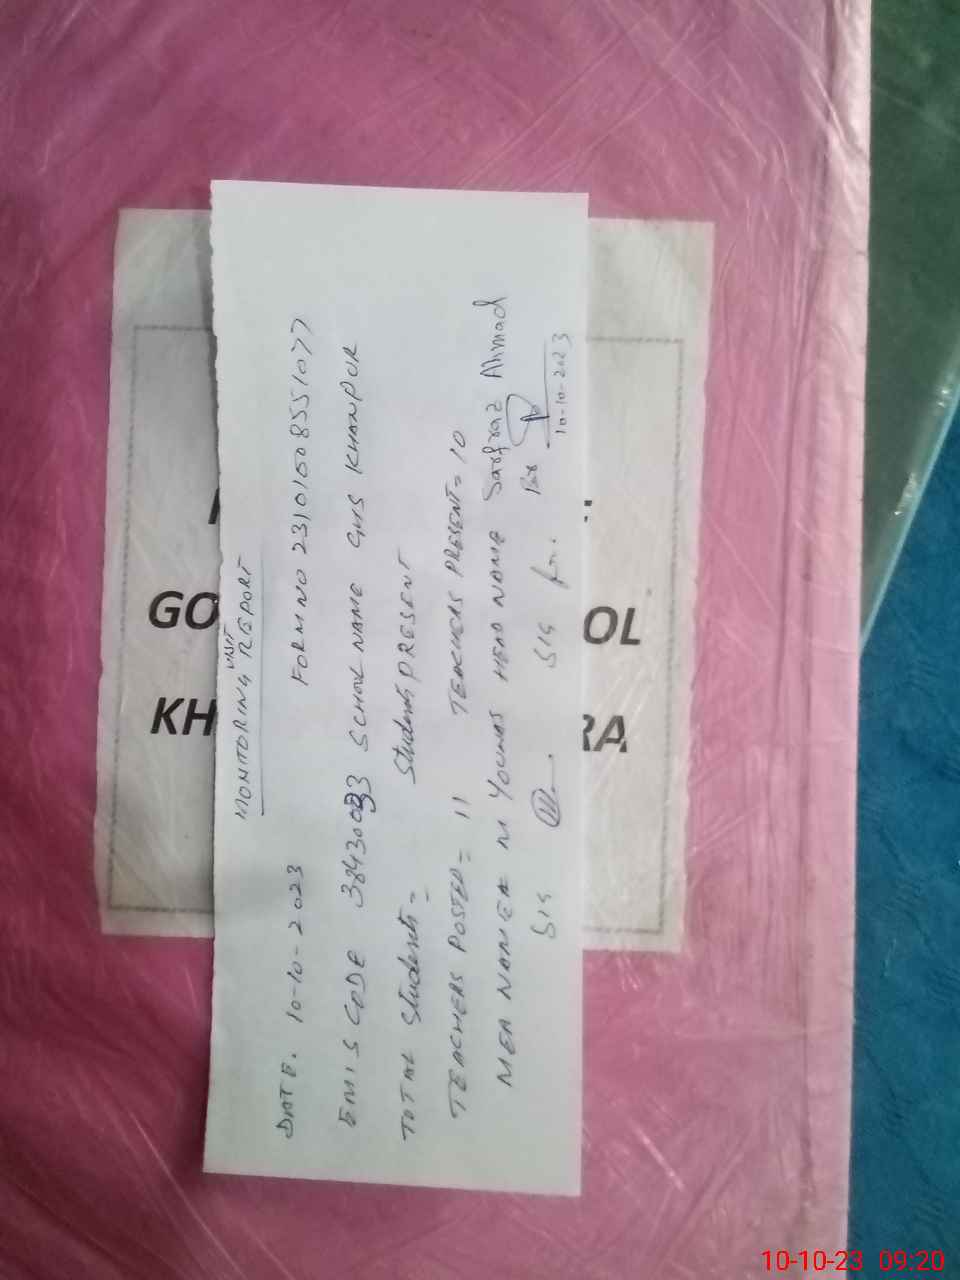 MONITORING VISIT REPORT
DATE. 10-10-2023 FORM NO 23101508551077
EMIS CODE SCHOOL NAME GHS KHANPUR
TOTAL Students = Students PRESENT
TEACHERS POSTED = 11 TEACHERS PRESENT = 10
MEA NAME M YOUNAS HEAD NAME Sarfraz Ahmad
SIG SIG
10-10-2023
GO OL
KH RA
10-10-23 09:20